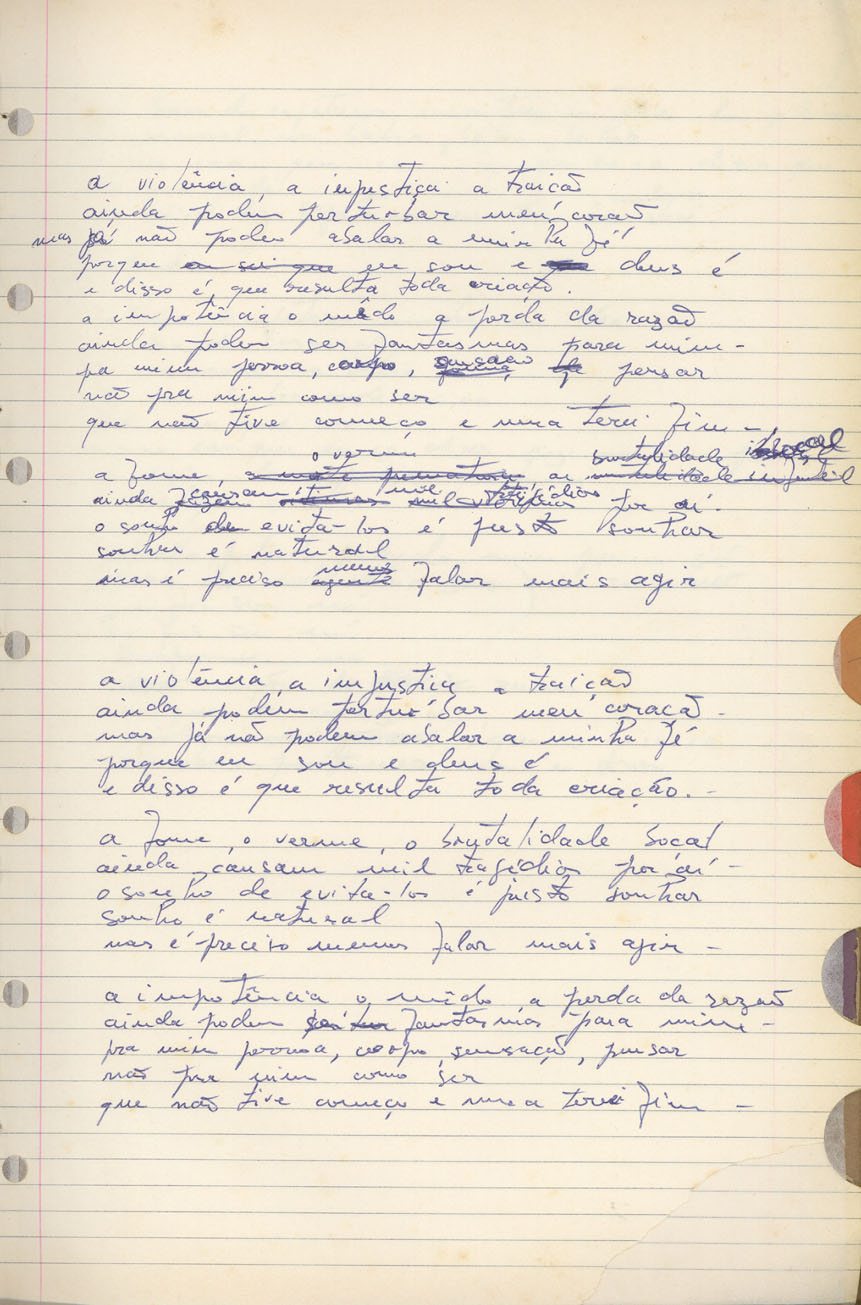 a violência, a injustiça a traição
ainda podem perturbar meu coraç
mas já não podem abalar a minha fé
porque eu sei que eu sou e deus é
e disso é que resulta toda criação.
a impotência o mêdo a perda da razão
ainda podem ser fantasmas para mim -
pra mim pessoa, corpo, sensação pensar
não pra mim como ser
que não tive começo e nunca terei fim -
o verme brutalidade
a fome, a morte prematura a
causam mil tragédias
ainda fazem por aí.
o sonho de evita-los é justo sonhar
sonhar é natural
menos
mas é preciso falar mais agir
a violência, a injustiça a traição
ainda podem perturbar meu coração -
mas já não podem abalar a minha fé
porque eu sou e deus é
e disso é que resulta toda criação. -
a fome, o verme, a brutalidade social
ainda causam mil tragédias por aí -
o sonho de evita-los é justo sonhar
sonho é natural
mas é preciso menos falar mais agir -
a impotência o mêdo a perda da razão
ainda podem ser fantasmas para mim -
pra mim pessoa, corpo, sensação, pensar
não pra mim como ser
que não tive começo e nunca terei fim -